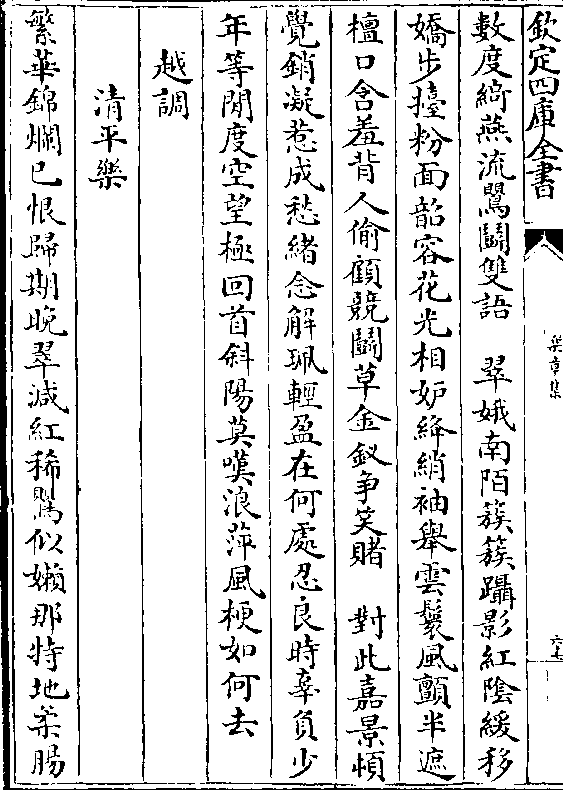 欽定四庫全書
樂章集
六十
數度綺燕流鶯鬬雙語　翠娥南陌簇簇躡影紅陰緩移
嬌步擡粉面韶容花光相妒絳綃袖舉雲鬟風顫半遮
檀口含羞背人偷顧競鬬草金釵爭笑賭　對此嘉景頓
覺銷凝惹成愁緒念解珮輕盈在何處忍良時辜負少
年等閒度空望極回首斜陽莫嘆浪萍風梗如何去
越調
清平樂
繁華錦爛已恨歸期晚翠減紅稀鶯似嬾那特地柔腸